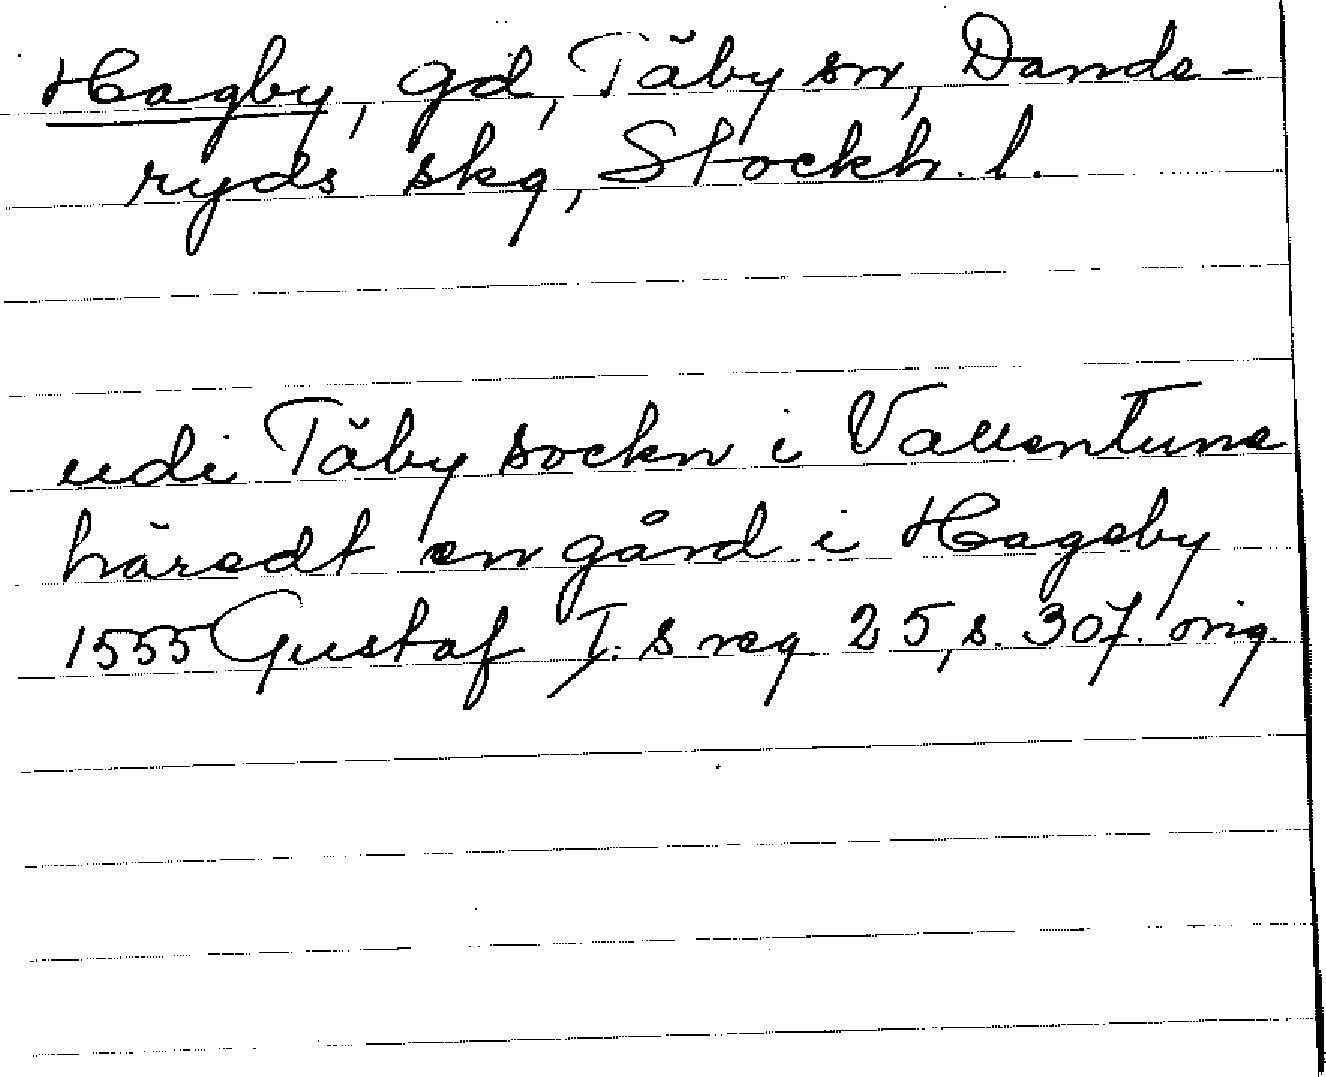 Hagby, gd, Täby sn, Dande-
ryds skg, Stockh. l.
udi Täby sockn i Vallentune
häredt en gård i Hageby
1555 Gustaf I:s reg 25, s. 307. orig.